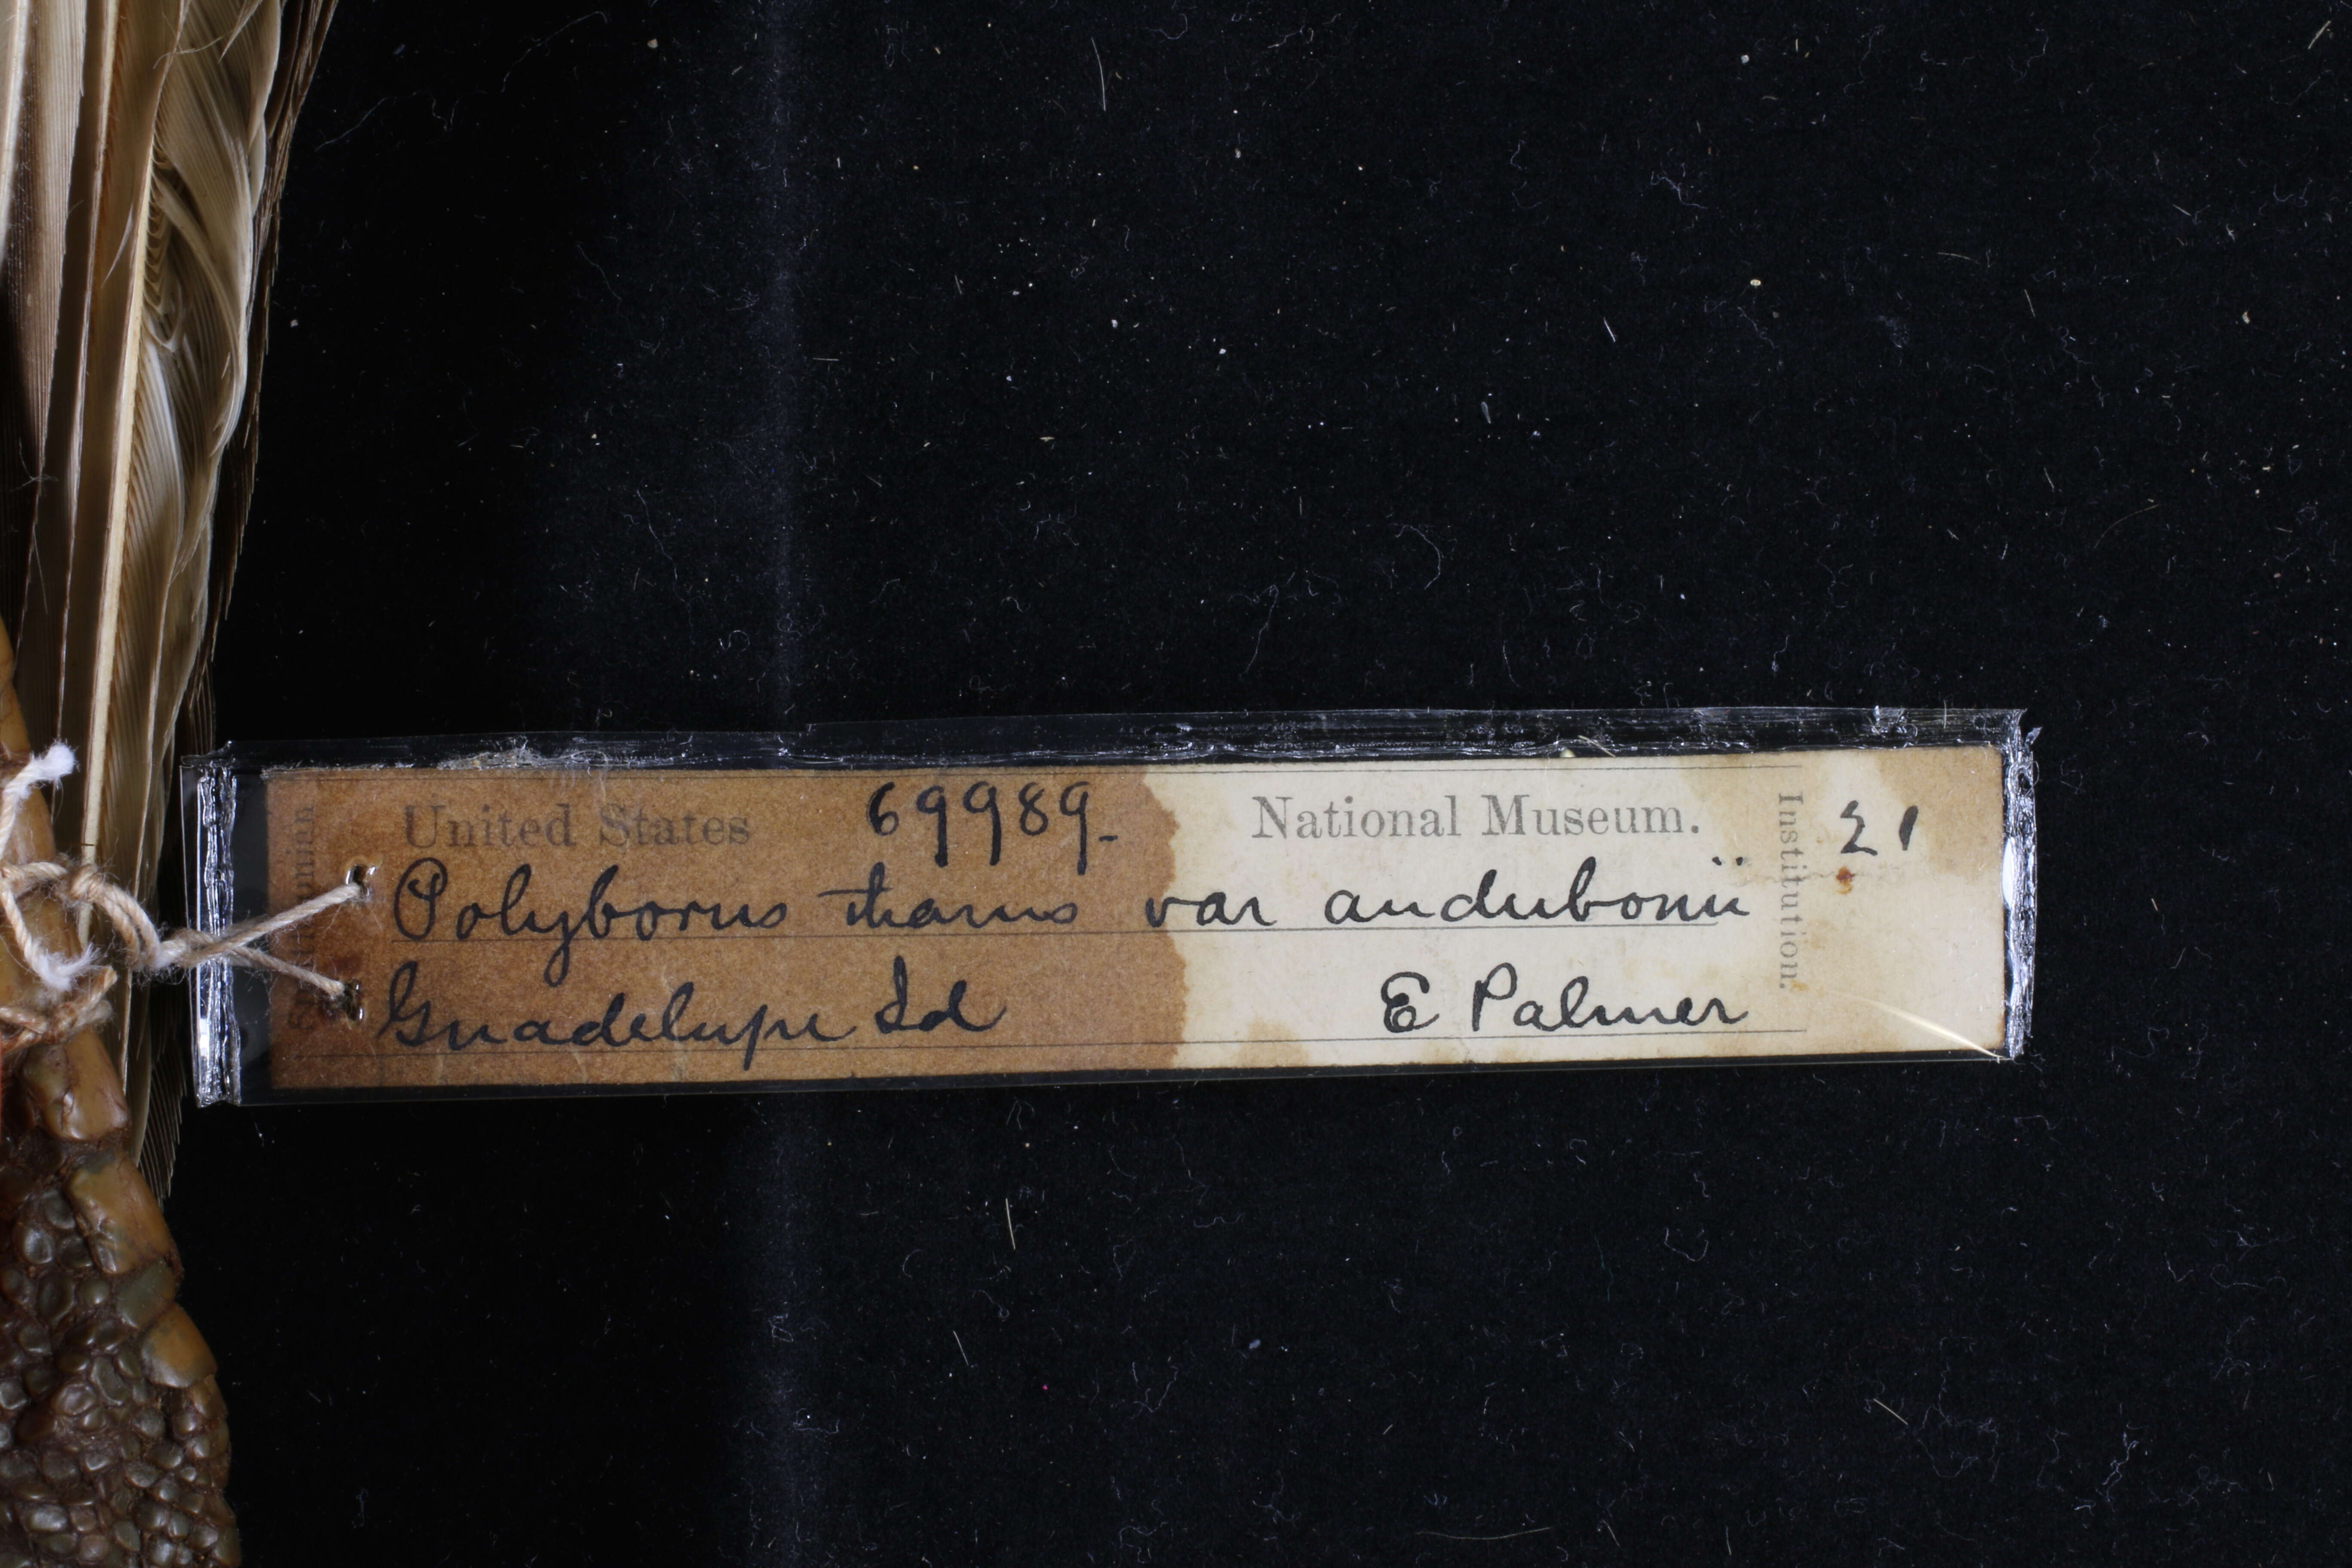 United States 69989- National Museum.
Polyborus tharus var audubonii
Guadelupe Id E Palmer
Smithsonian
Institution.
21